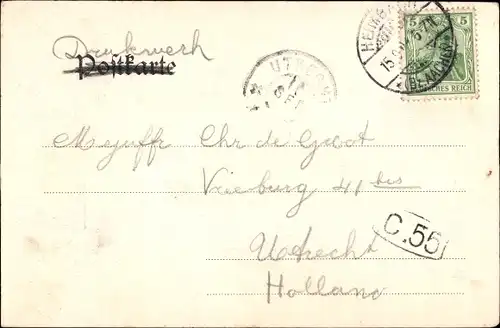 Drukwerk
Postkarte
5 5
DEUTSCHES REICH
UTRECHT
Mejuffr Chr de Groot
Vrieburg 41 bis
C.55
Utrecht
Holland